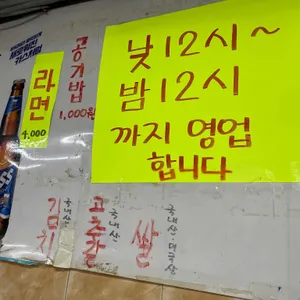 낮 12시~
밤 12시
까지 영업
합니다
라면
4,000
공기밥
1,000원
김치
국내산
고추가루
국내산
쌀